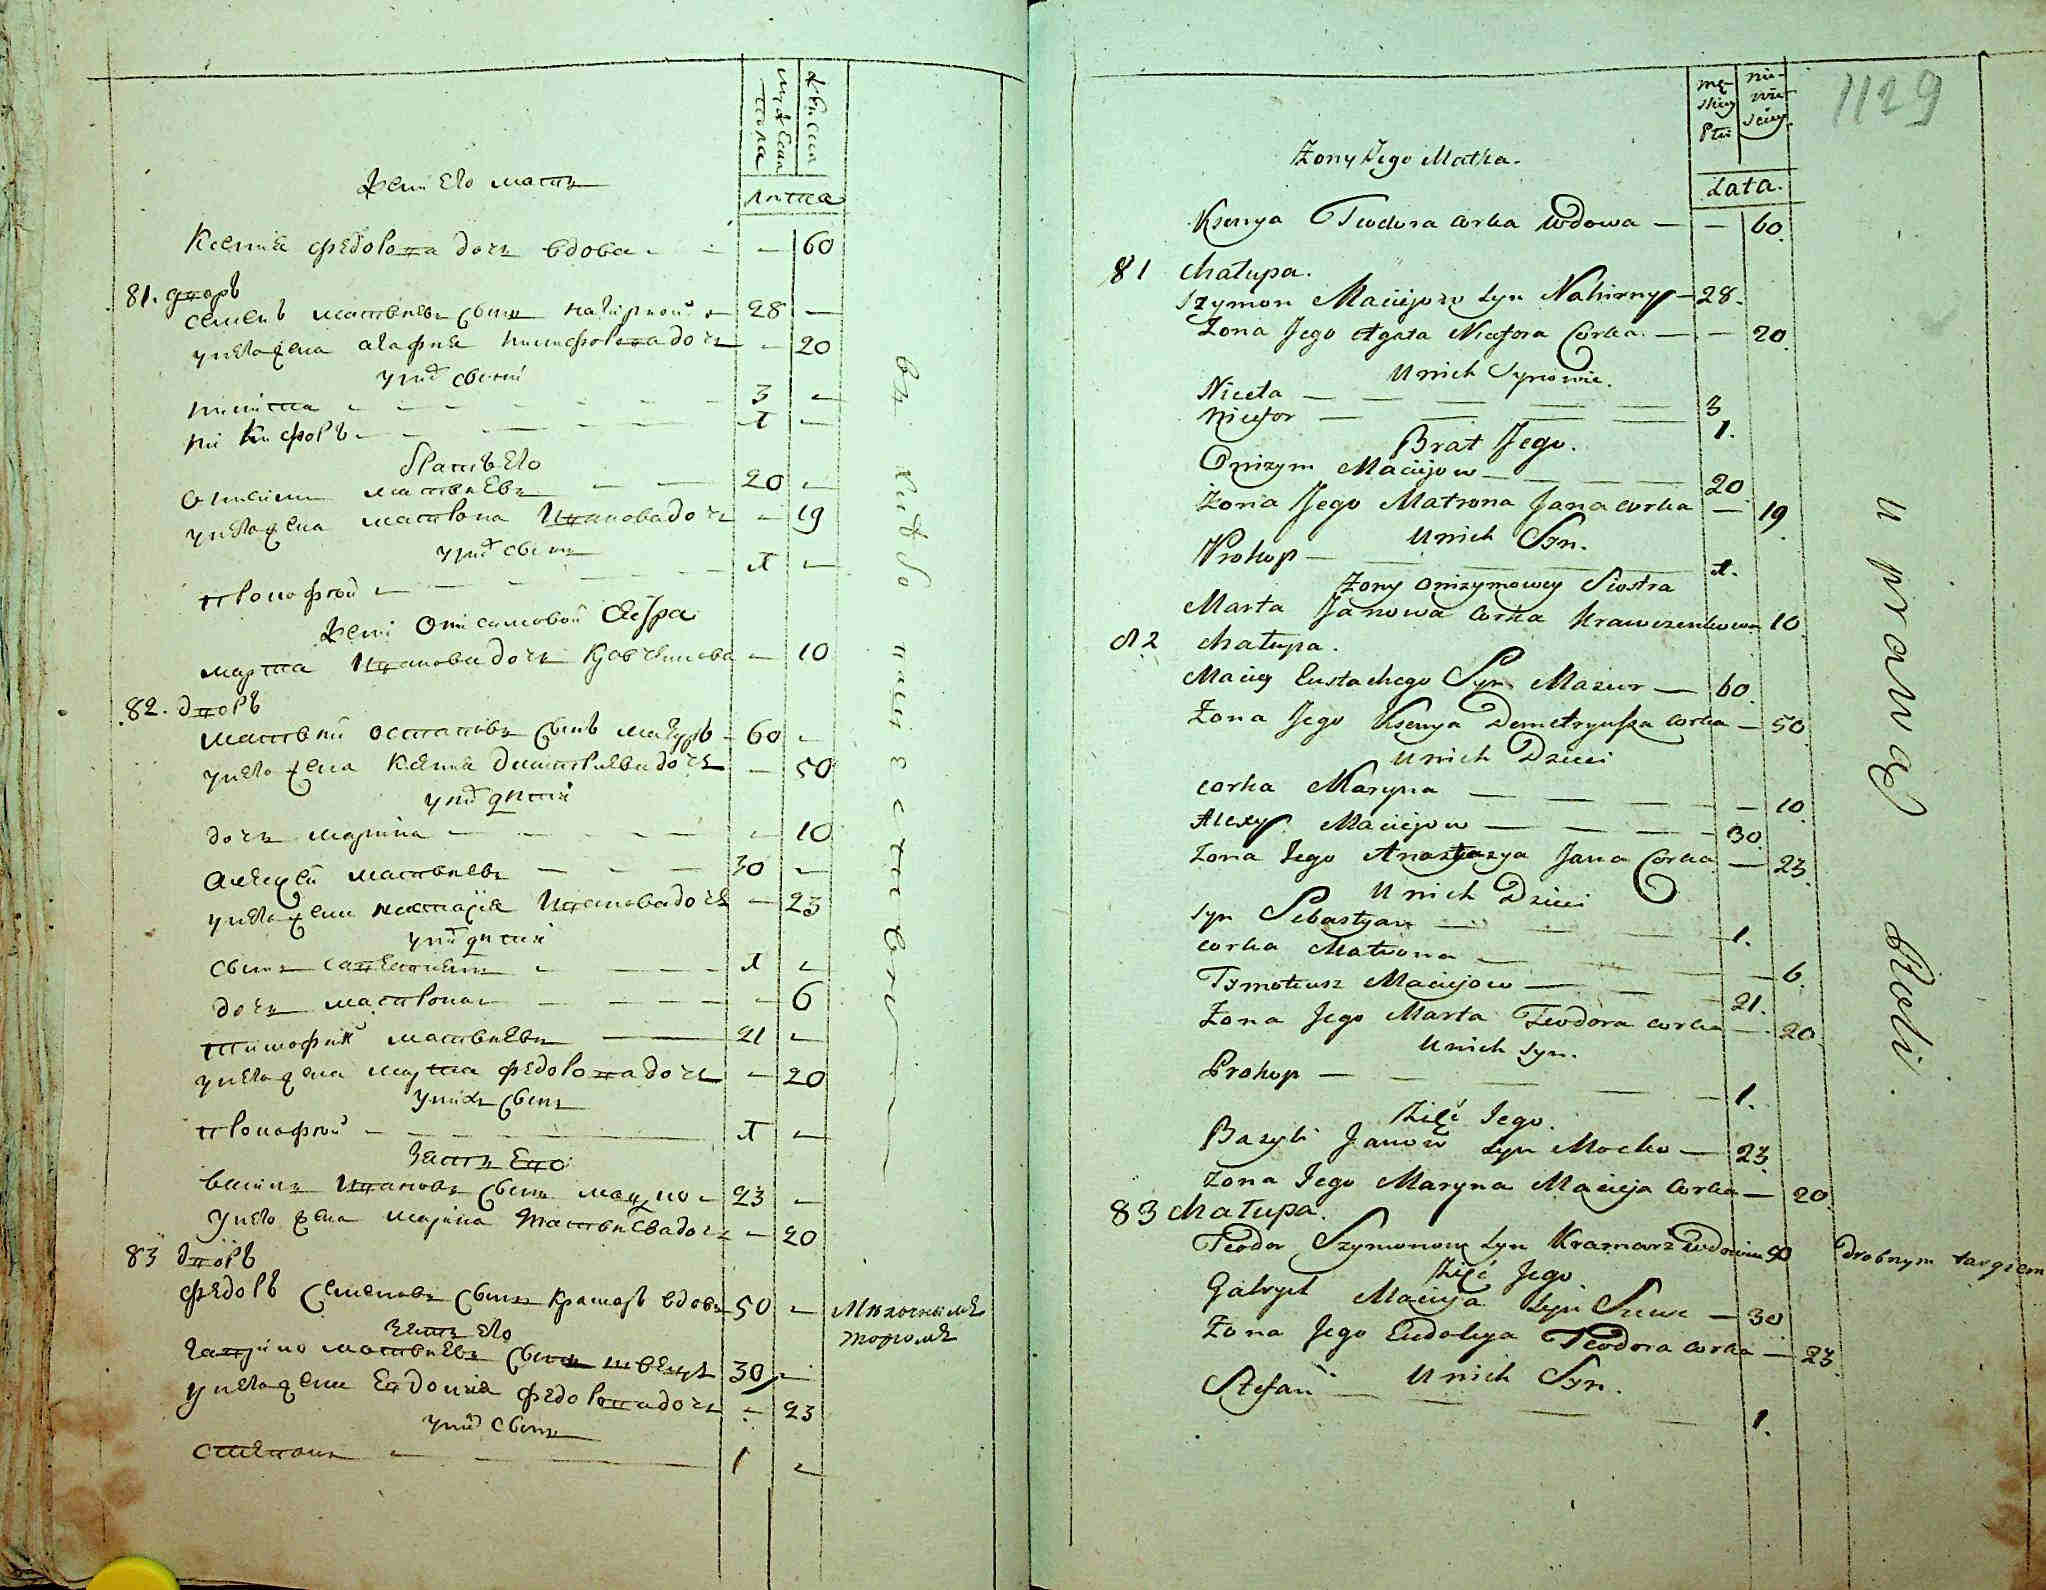 мужеска пола
женска
лѣта
Жени его мать
Ксения Федорова дочь вдова — — 60
81. дворъ
Семенъ Матвѣевъ сынъ Нагирной — 28 —
у него жена Агафия Никифорова дочь — 20
у них сыны
Никита — — — 3 —
Никифоръ — — — 1 —
братъ его
Онисимъ Матвѣевъ — — 20 —
у него жена Матрона Иванова дочь — 19
у них сынъ
Прокофей — — — 1 —
жены Онисимовой сестра
Марта Иванова дочь Кравченкова — 10
82. дворъ
Матвей Остаповъ сынъ Мазуръ — 60 —
у него жена Ксения Дмитриева дочь — 50
у них дети
дочь Марина — — — 10
Алексей Матвѣевъ — — — 30 —
у него жена Настасия Иванова дочь — 23
у них дети
сынъ — — — 1 —
дочь Матрона — — — 6
Тимофей Матвѣевъ — 21 —
у него жена Марта Федорова дочь — 20
у нихъ сынъ
Прокофей — — — 1 —
Зять его
Василь Ивановъ сынъ — 23 —
у него жена Марина Матвѣева дочь — 20
83 дворъ
Федоръ Семеновъ сынъ Крамаръ вдовъ 50 —
Зять его
Гаврило Матвѣевъ сынъ Швецъ 30 —
у него жена Евдокия Федорова дочь — 23
у них сынъ
Степанъ — — — 1 —
въ хлѣбо пашествѣ
Мѣлочнымъ
торгомъ
1129
mę-
skiey
Płci
nie-
wie-
sciey
Lata.
Żony Jego Matka.
Ksenya Teodora corka wdowa — — 60.
81 chałupa.
Szymon Maciejow syn Nahirny — 28.
Żona Jego Agata Nicefora Corka. — — 20.
U nich Synowie.
Niceta — — — 3
Nicefor — — — 1.
Brat Jego.
Onizym Maciejow — — — 20.
Żona Jego Matrona Jana corka — 19.
U nich Syn.
Prokop — — — 1.
Żony Onizymowey Siostra
Marta Janowa Corka Krawczenkowa 10.
82 chałupa.
Maciey Eustachego Syn Mazur — 60.
Żona Jego Ksenya Demetryusza corka — 50.
U nich Dzieci
corka Maryna — — — 10.
Alexy Maciejow — — — 30.
Żona Jego Anastazya Jana Corka — 23.
U nich Dzieci
syn Sebastyan — — — 1.
corka Matrona — — — 6.
Tymoteusz Maciejow — — — 21.
Żona Jego Marta Teodora corka — 20.
U nich syn.
Prokop — — — 1.
Zięć Jego.
Bazyli Janow syn Mocko — 23.
Żona Jego Maryna Macieja Corka — 20.
83 chałupa.
Teodor Szymonow syn Kramarz Wdowiec 50
Zięć Jego
Gabryel Macieja syn Szewc — 30.
Żona Jego Eudokya Teodora corka — 23.
U nich Syn.
Stefan — — — 1.
uprawą Roli.
Drobnym targiem